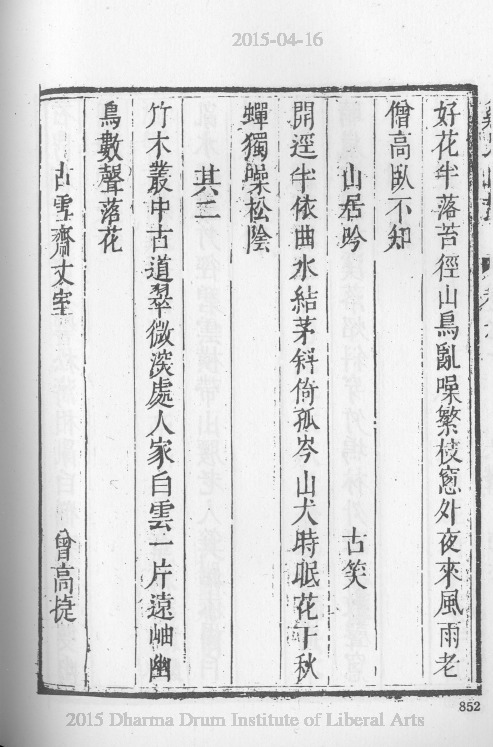 2015-04-16
好花半落苔徑山鳥亂噪繁枝窓外夜來風雨老
僧高臥不知
山居吟 古笑
開逕半依曲水結茅斜倚孤岑山犬時眠花下秋
蟬獨噪松陰
其二
竹木叢中古道翠微深處人家白雲一片遠岫幽
鳥數聲落花
古雪齋丈室 曾高捷
852
2015 Dharma Drum Institute of Liberal Arts